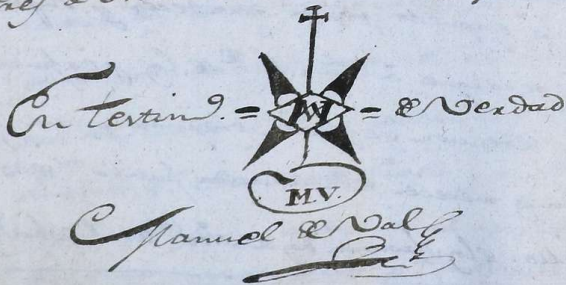 En testim.º = = de Verdad
M.V.
Manuel de Val